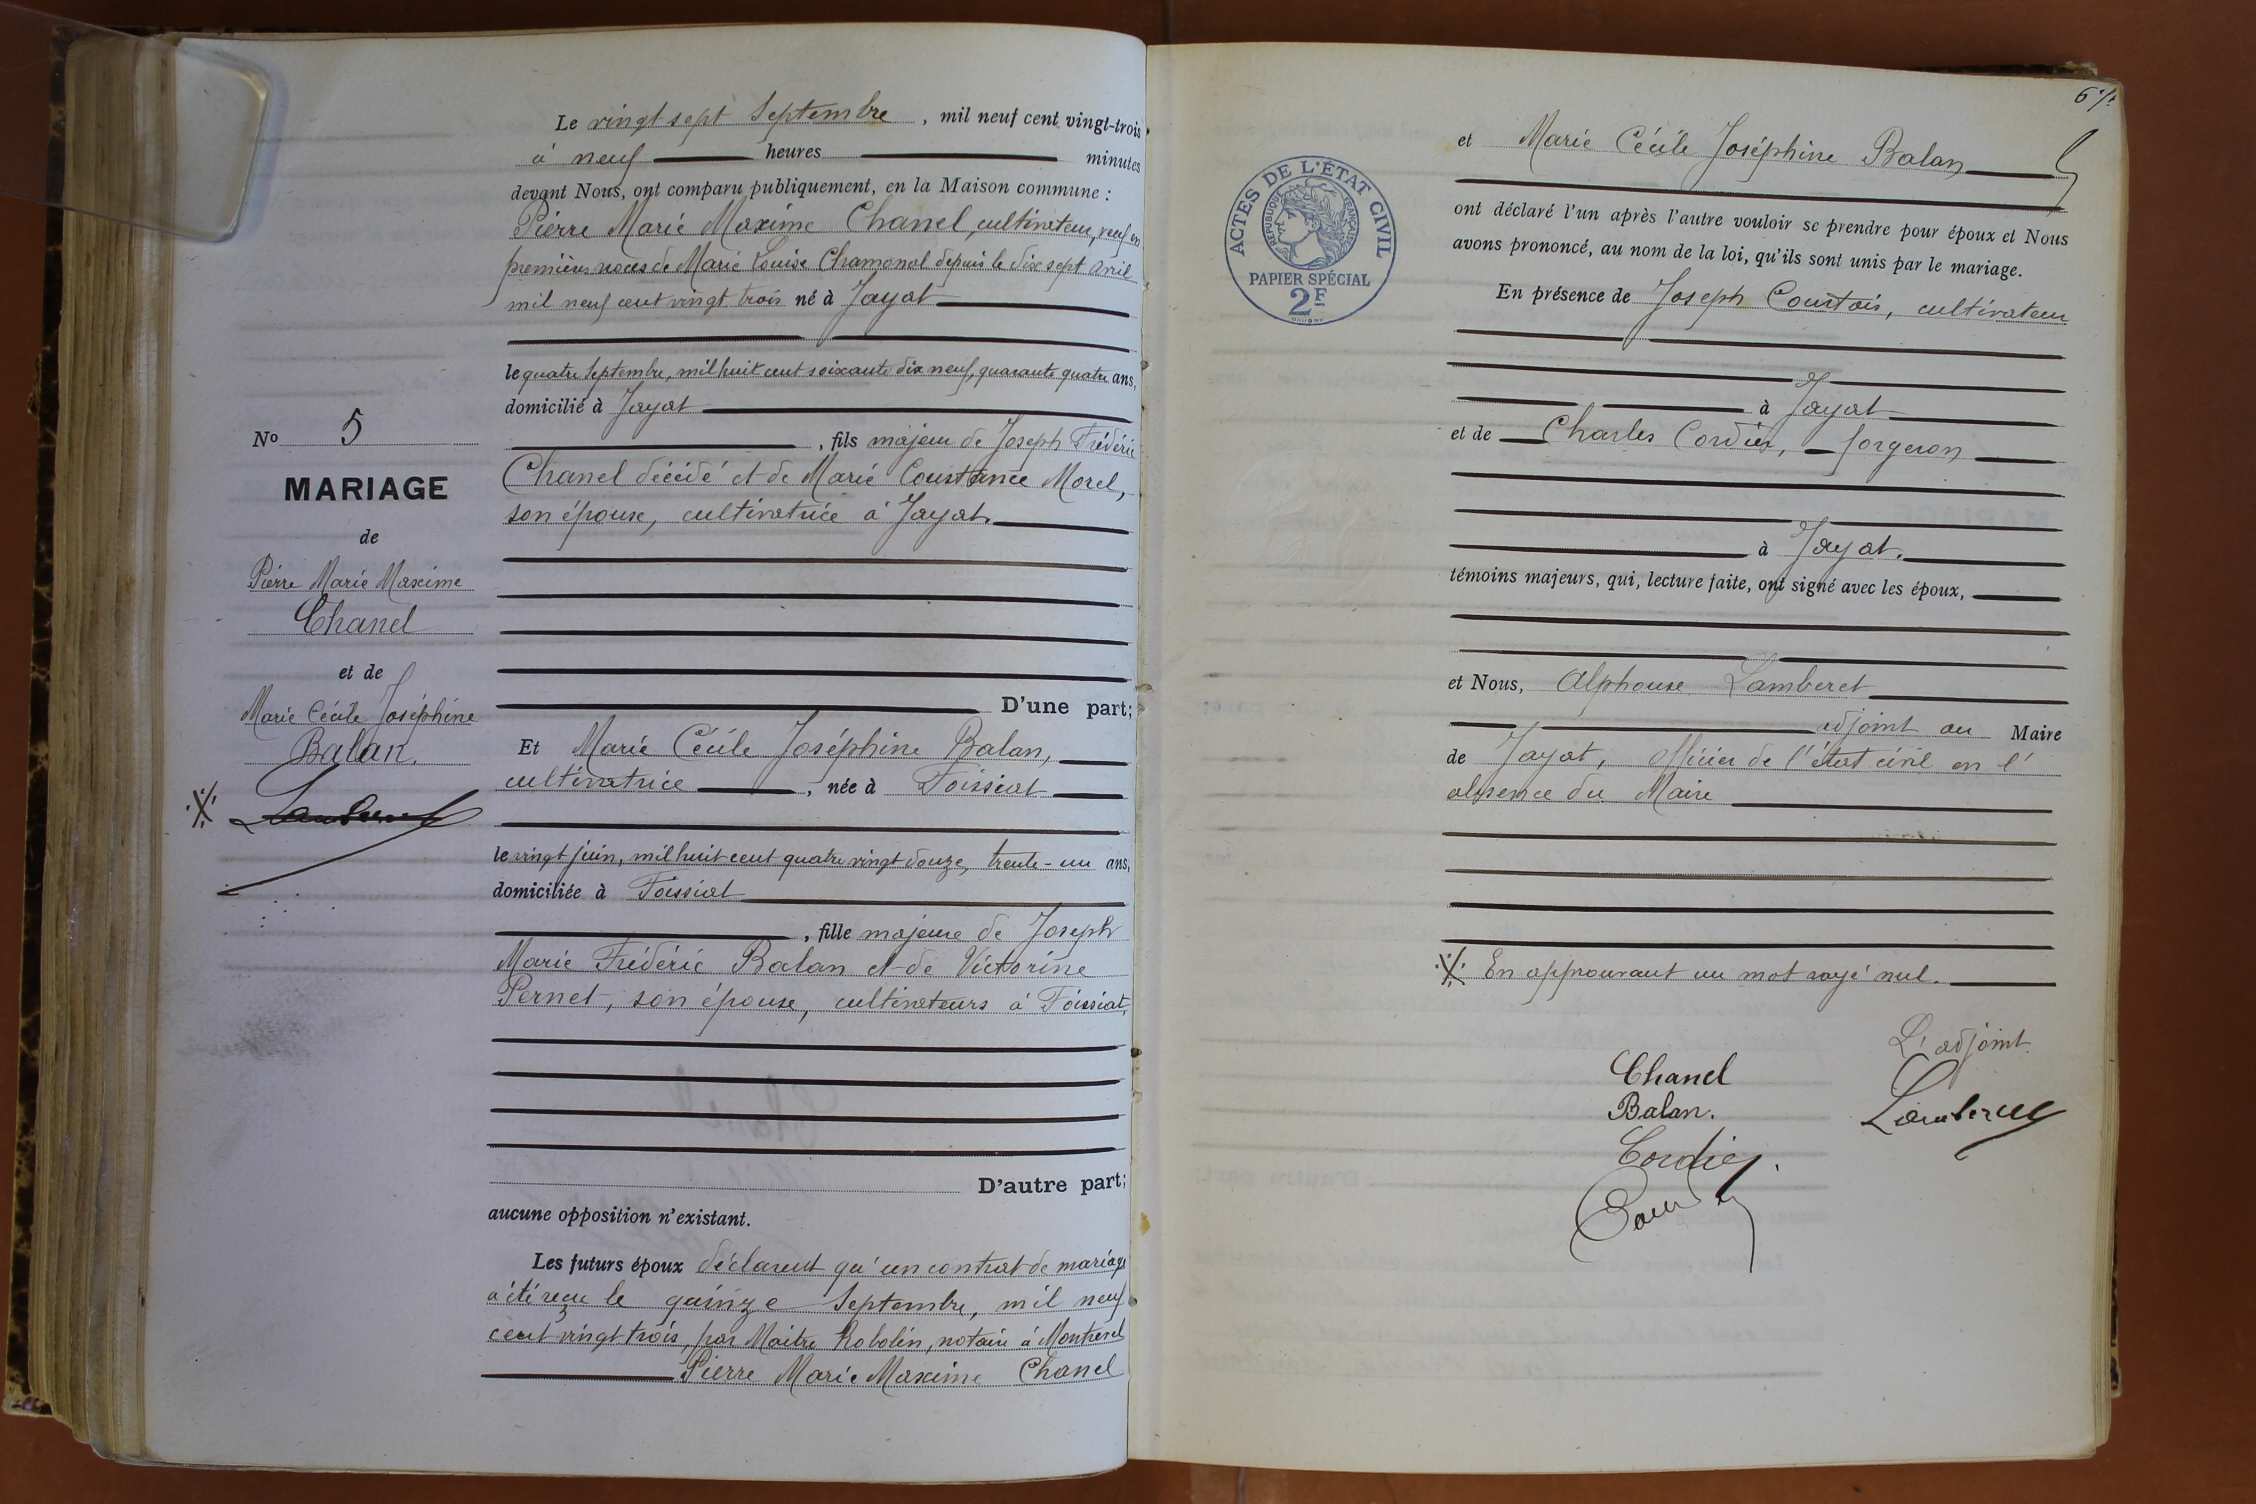 Le vingt sept Septembre, mil neuf cent vingt-trois
à neuf heures minutes
devant Nous, ont comparu publiquement, en la Maison commune :
Pierre Marie Maxime Chanel, cultivateur, veuf en
premières noces de Marie Louise Chamonal depuis le dix sept avril
mil neuf cent vingt trois né à Jayat
le quatre Septembre, mil huit cent soixante dix neuf, quarante quatre ans,
domicilié à Jayat
, fils majeur de Joseph Frédéric
Chanel décédé et de Marie Constance Morel,
son épouse, cultivatrice à Jayat.
D'une part;
Et Marie Cécile Joséphine Balan,
cultivatrice, née à Foissiat
le vingt juin, mil huit cent quatre vingt douze, trente-un ans,
domiciliée à Foissiat
, fille majeure de Joseph
Marie Frédéric Balan et de Victorine
Pernet, son épouse, cultivateurs à Foissiat,
D'autre part;
aucune opposition n'existant.
Les futurs époux déclarent qu'un contrat de mariage
a été reçu le quinze Septembre, mil neuf
cent vingt trois, par Maître Robolin, notaire à Montrevel
Pierre Marie Maxime Chanel
No 5
MARIAGE
de
Pierre Marie Maxime
Chanel
et de
Marie Cécile Joséphine
Balan.
Lamberet
et Marie Cécile Joséphine Balan
ont déclaré l'un après l'autre vouloir se prendre pour époux et Nous
avons prononcé, au nom de la loi, qu'ils sont unis par le mariage.
En présence de Joseph Courtois, cultivateur
à Jayat
et de Charles Cordier, forgeron
à Jayat.
témoins majeurs, qui, lecture faite, ont signé avec les époux,
et Nous, Alphonse Lamberet
adjoint au Maire
de Jayat, officier de l'état civil en l'
absence du Maire
En approuvant un mot rayé nul.
L'adjoint
Chanel
Balan.
Lamberet
Cordier.
ACTES DE L'ÉTAT CIVIL
REPUBLIQUE FRANÇAISE
PAPIER SPÉCIAL
2F